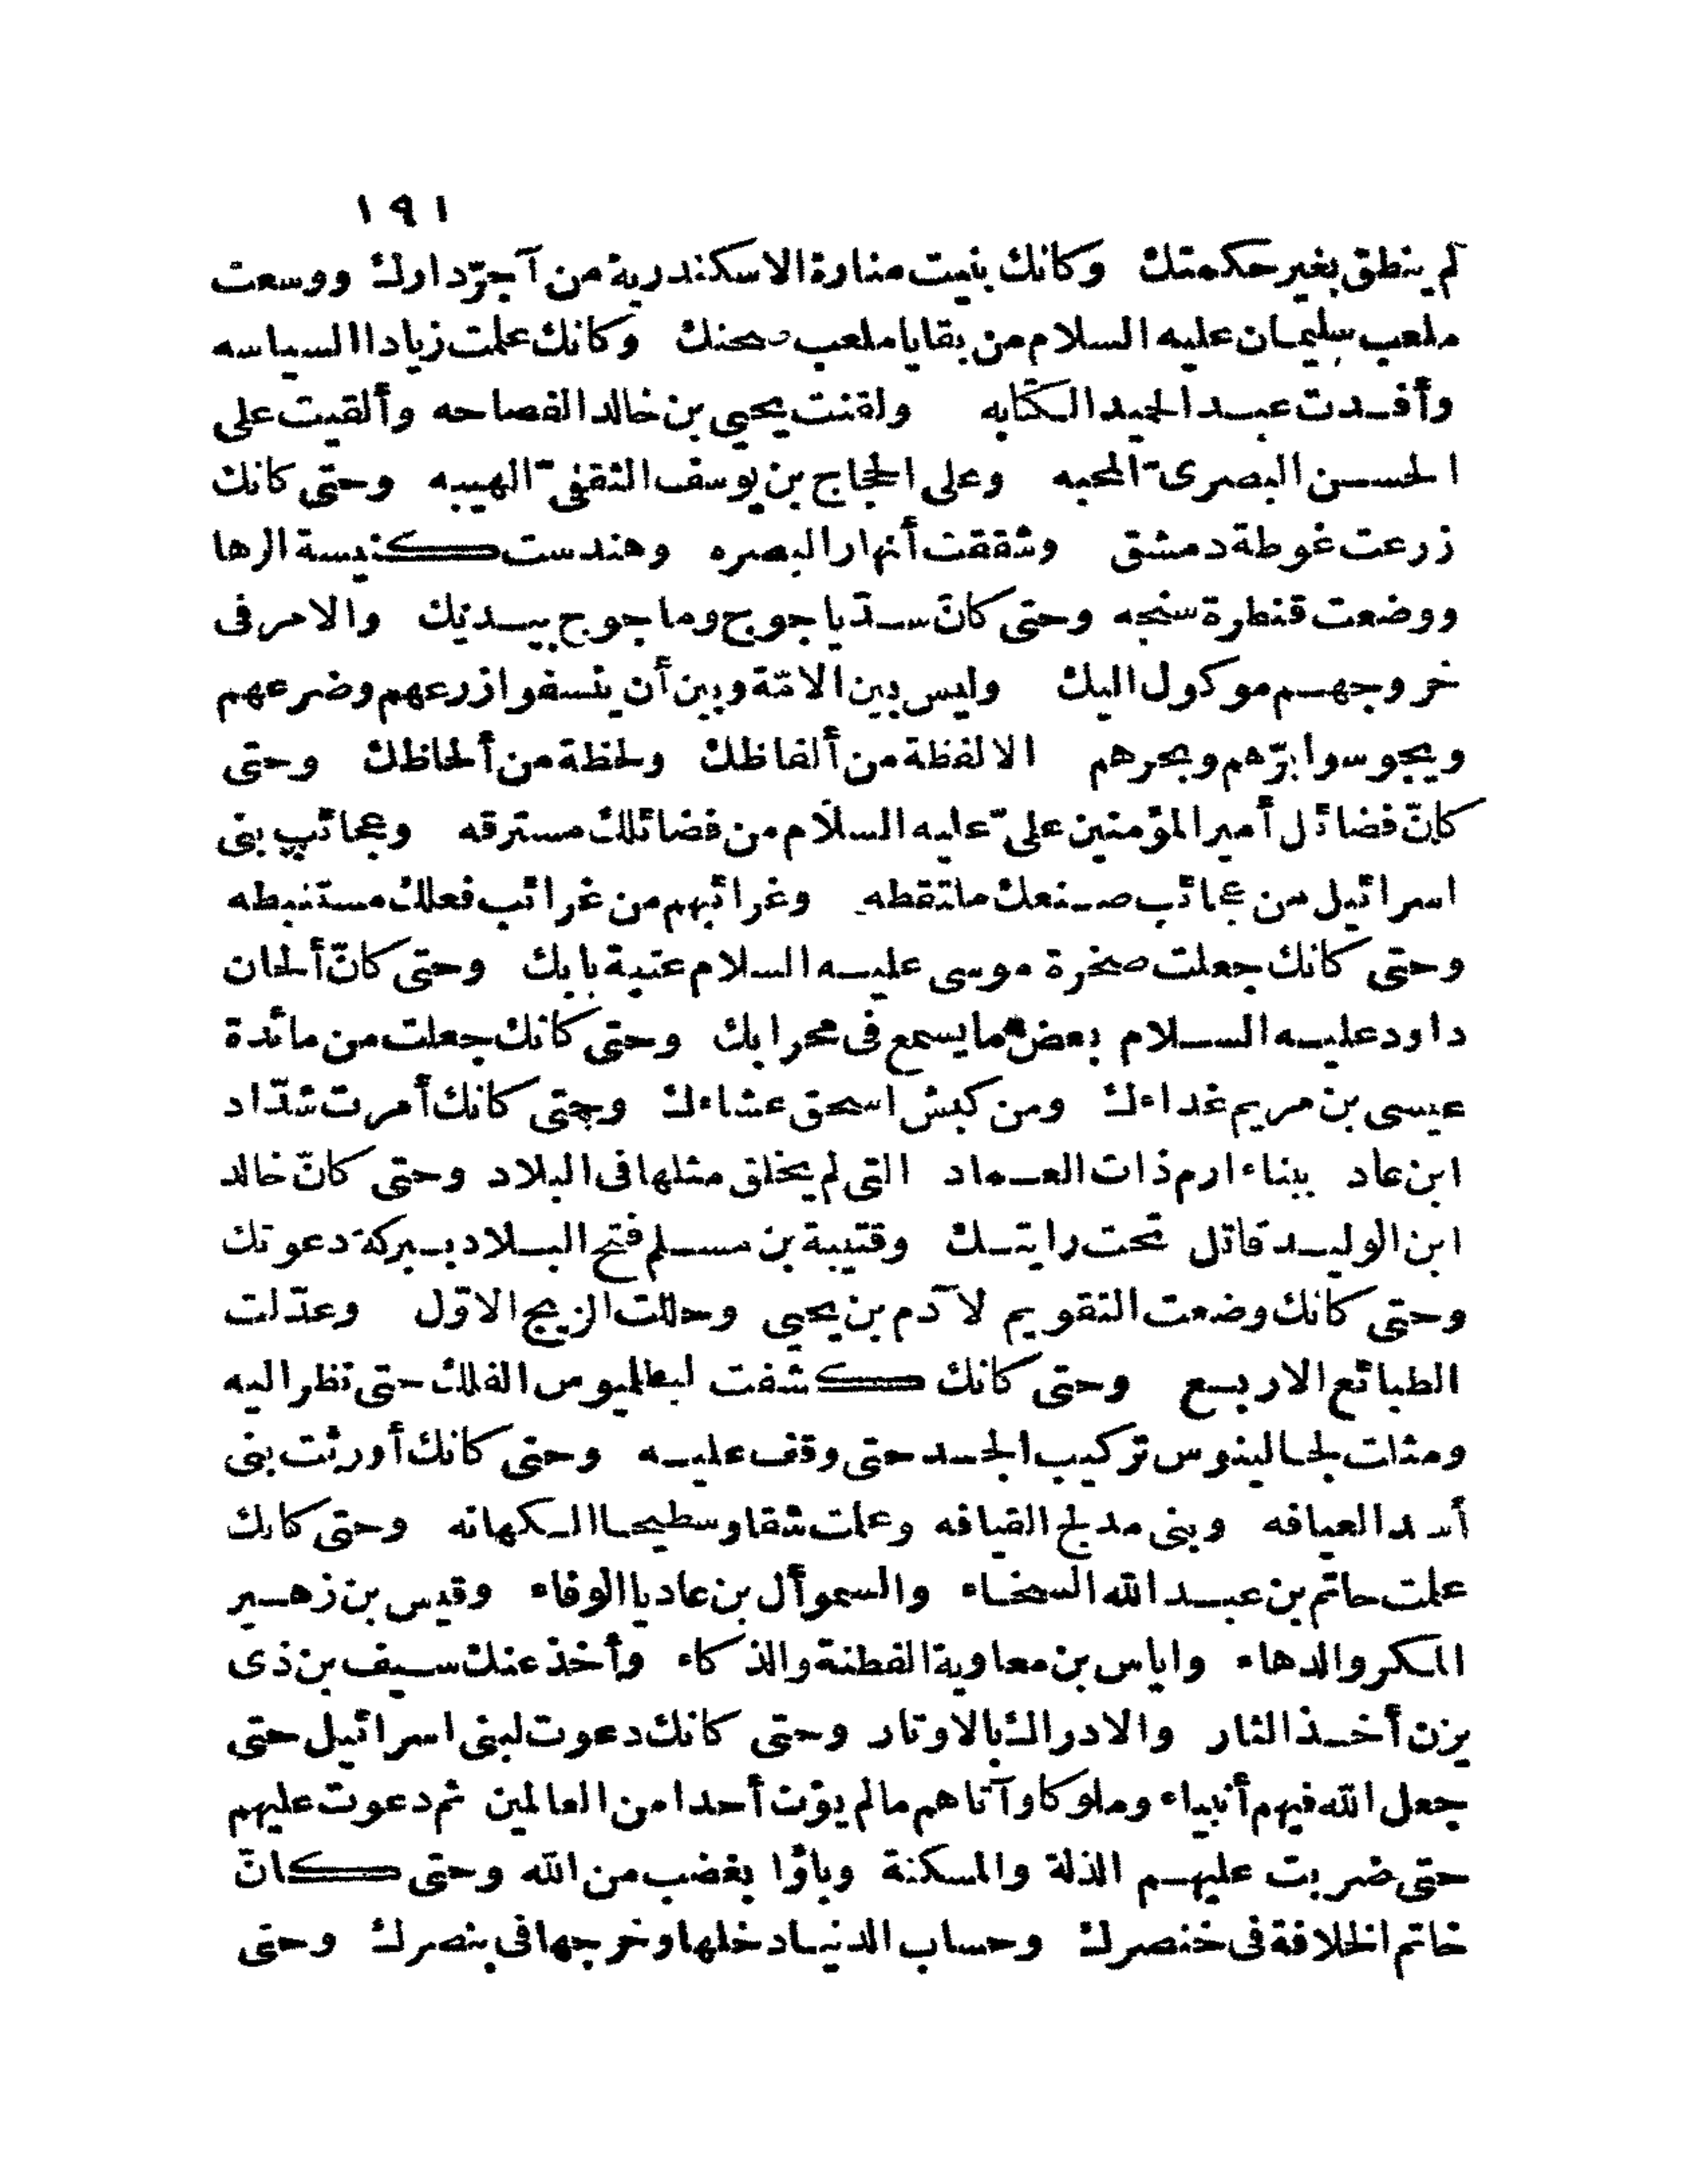 ١٩١
لم ينطق بغير حكمتك وكانك بنيت منارة الاسكندرية من آجرّ دارك ووسعت
ملعب سليمان عليه السلام من بقايا ملعب صحنك وكانك علمت زيادا السياسه
وأفدت عبد الحميد الكتابه ولقنت يحيى بن خالد الفصاحه وألقيت على
الحسن البصرىّ المحبه وعلى الحجاج بن يوسف الثقفىّ الهيبه وحتى كانك
زرعت غوطة دمشق وشققت أنهار البصره وهندست كنيسة الرها
ووضعت قنطرة سنجه وحتى كانّ سدّ ياجوج وماجوج بيديك والامر فى
خروجهم موكول اليك وليس بين الامّة وبين أن ينسفوا زرعهم وضرعهم
ويجوسوا برّهم وبحرهم الا لفظة من ألفاظك ولحظة من ألحاظك وحتى
كانّ فضائل أمير المؤمنين علىّ عليه السلام من فضائلك مسترقه وعجائب بنى
اسرائيل من عجائب صنعك ملتقطه وغرائبهم من غرائب فعلك مستنبطه
وحتى كانك جعلت صخرة موسى عليه السلام عتبة بابك وحتى كانّ ألحان
داود عليه السلام بعض ما يسمع فى محرابك وحتى كانك جعلت من مائدة
عيسى بن مريم غداءك ومن كبش اسحق عشاءك وحتى كانك أمرت شدّاد
ابن عاد ببناء ارم ذات العماد التى لم يخلق مثلها فى البلاد وحتى كانّ خالد
ابن الوليد قاتل تحت رايتك وقتيبة بن مسلم فتح البلاد ببركة دعوتك
وحتى كانك وضعت التقويم لآدم بن يحيى وحللت الزيج الاوّل وعدّلت
الطبائع الاربع وحتى كانك كشفت لبطليوس الفلك حتى نظر اليه
ومثلت لجالينوس تركيب الجسد حتى وقف عليه وحتى كانك أورثت بنى
أسد العيافه وبنى مدلج القيافه وعلمت شقا وسطيحا الكهانه وحتى كانك
علمت حاتم بن عبد الله السخاء والسموأل بن عاديا الوفاء وقيس بن زهير
المكر والدهاء واياس بن معاوية الفطنة والذكاء وأخذ عنك سيف بن ذى
يزن أخذ الثار والادراك بالاوتار وحتى كانك دعوت لبنى اسرائيل حتى
جعل الله فيهم أنبياء وملوكا وآتاهم مالم يؤت أحدا من العالمين ثم دعوت عليهم
حتى ضربت عليهم الذلة والمسكنة وباؤا بغضب من الله وحتى كانّ
خاتم الخلافة فى خنصرك وحساب الدنيا دخلها وخرجها فى بنصرك وحتى